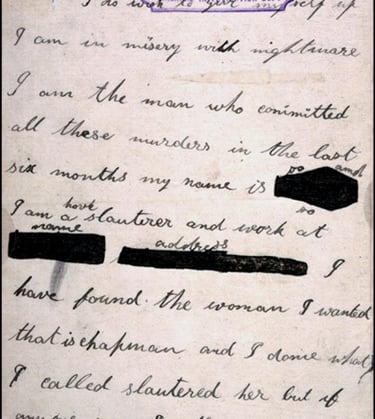 I do wish to give myself up
I am in misery with nightmare
I am the man who committed
all these murders in the last
six months my name is so and
so
I am a horse slauterer and work at
name address I
have found the woman I wanted
that is chapman and I done what
I called slautered her but if